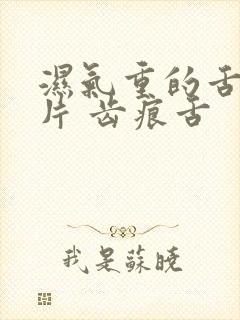 濕氣重的舌
片 齿痕舌
我是蘇曉